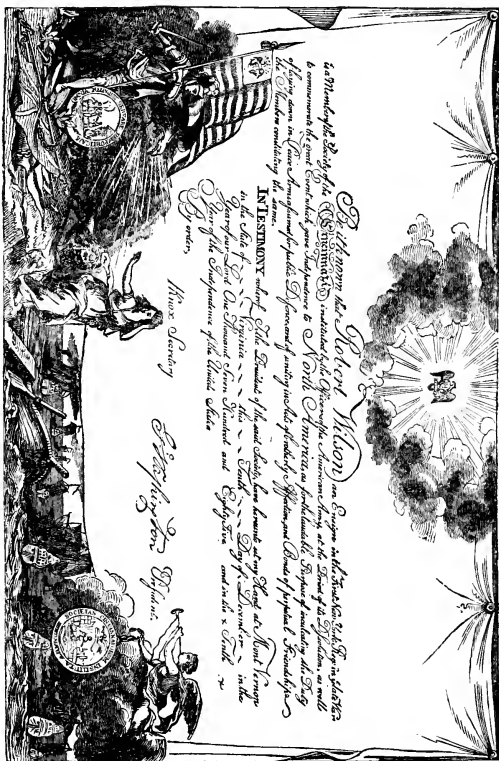 Be it known that Robert Wilson an Ensign in the First New York Reg. in late War
is a Member of the Society of the Cincinnati; instituted by the Officers of the American Army, at the Period of its Dissolution, as well
to commemorate the great Event which gave Independence to North America, as for the laudable Purpose of inculcating the Duty
of laying down in Peace Arms assumed for public Defence, and of uniting in Acts of brotherly Affection, and Bonds of perpetual Friendship
the Members constituting the same.
IN TESTIMONY whereof I, the President of the said Society, have hereunto set my Hand at Mount Vernon
in the State of Virginia this Tenth Day of December in the
Year of our Lord One Thousand Seven Hundred and Eighty Five and in the Tenth
Year of the Independence of the United States
By order,
Knox Secretary
G. Washington President
SOCIETAS